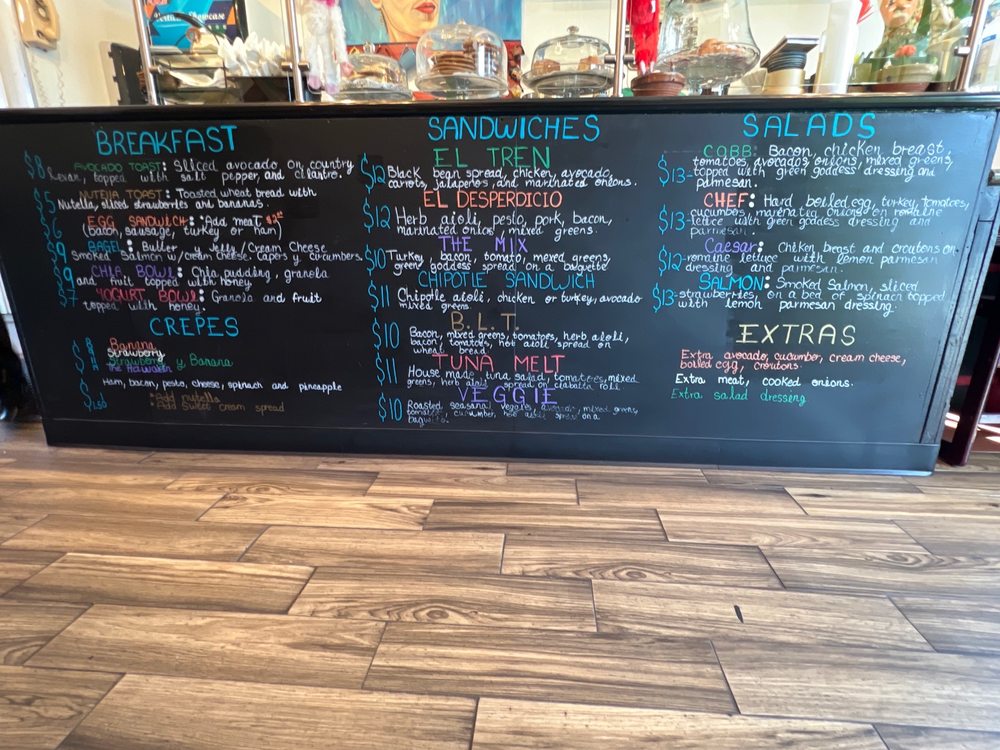 BREAKFAST
$8 AVOCADO TOAST: Sliced avocado on country
levan, topped with salt pepper, and cilantro.
$5 NUTELLA TOAST: Toasted wheat bread with
Nutella, sliced strawberries and bananas.
$6 EGG SANDWICH: *Add meat
(bacon, sausage, turkey or ham)
$9 BAGEL: Butter y Jelly/Cream Cheese
Smoked Salmon w/cream cheese. Capers y cucumbers.
$9 CHIA BOWL: Chia pudding, granola
and fruit topped with honey.
$7 YOGURT BOWL: Granola and fruit
topped with honey.
CREPES
Banana
Strawberry
Strawberry y Banana
the Hawaiian
Ham, bacon, pesto, cheese, spinach and pineapple
$1.50 *Add nutella
*Add sweet cream spread
SANDWICHES
EL TREN
$12 Black bean spread, chicken, avocado,
carrots, jalapeños, and marinated onions.
EL DESPERDICIO
$12 Herb aioli, pesto, pork, bacon,
marinated onion, mixed greens.
THE MIX
$10 Turkey, bacon, tomato, mixed greens,
green goddess spread on a baguette
CHIPOTLE SANDWICH
$11 Chipotle aioli, chicken or turkey, avocado
mixed greens.
B.L.T.
$10 Bacon, mixed greens, tomatoes, herb aioli,
bacon, tomatoes, hot aioli spread on
wheat bread
TUNA MELT
$11 House made tuna salad, tomatoes, mixed
greens, herb aioli spread on ciabatta roll.
VEGGIE
$10 Roasted seasonal veggies, avocado, mixed greens,
tomatoes, cucumber, hot aioli spread on a
baguette.
SALADS
$13- COBB: Bacon, chicken breast,
tomatoes, avocados, onions, mixed greens,
topped with green goddess dressing and
parmesan.
$13- CHEF: Hard boiled egg, turkey, tomatoes,
cucumbers, onions on romaine
lettuce with green goddess dressing and
parmesan.
$12- Caesar: Chiken breast and croutons on
romaine lettuce with lemon parmesan
dressing and parmesan.
$13- SALMON: Smoked Salmon, sliced
strawberries, on a bed of spinach topped
with lemon parmesan dressing.
EXTRAS
Extra avocado, cucumber, cream cheese,
boiled egg, croutons.
Extra meat, cooked onions.
Extra salad dressing